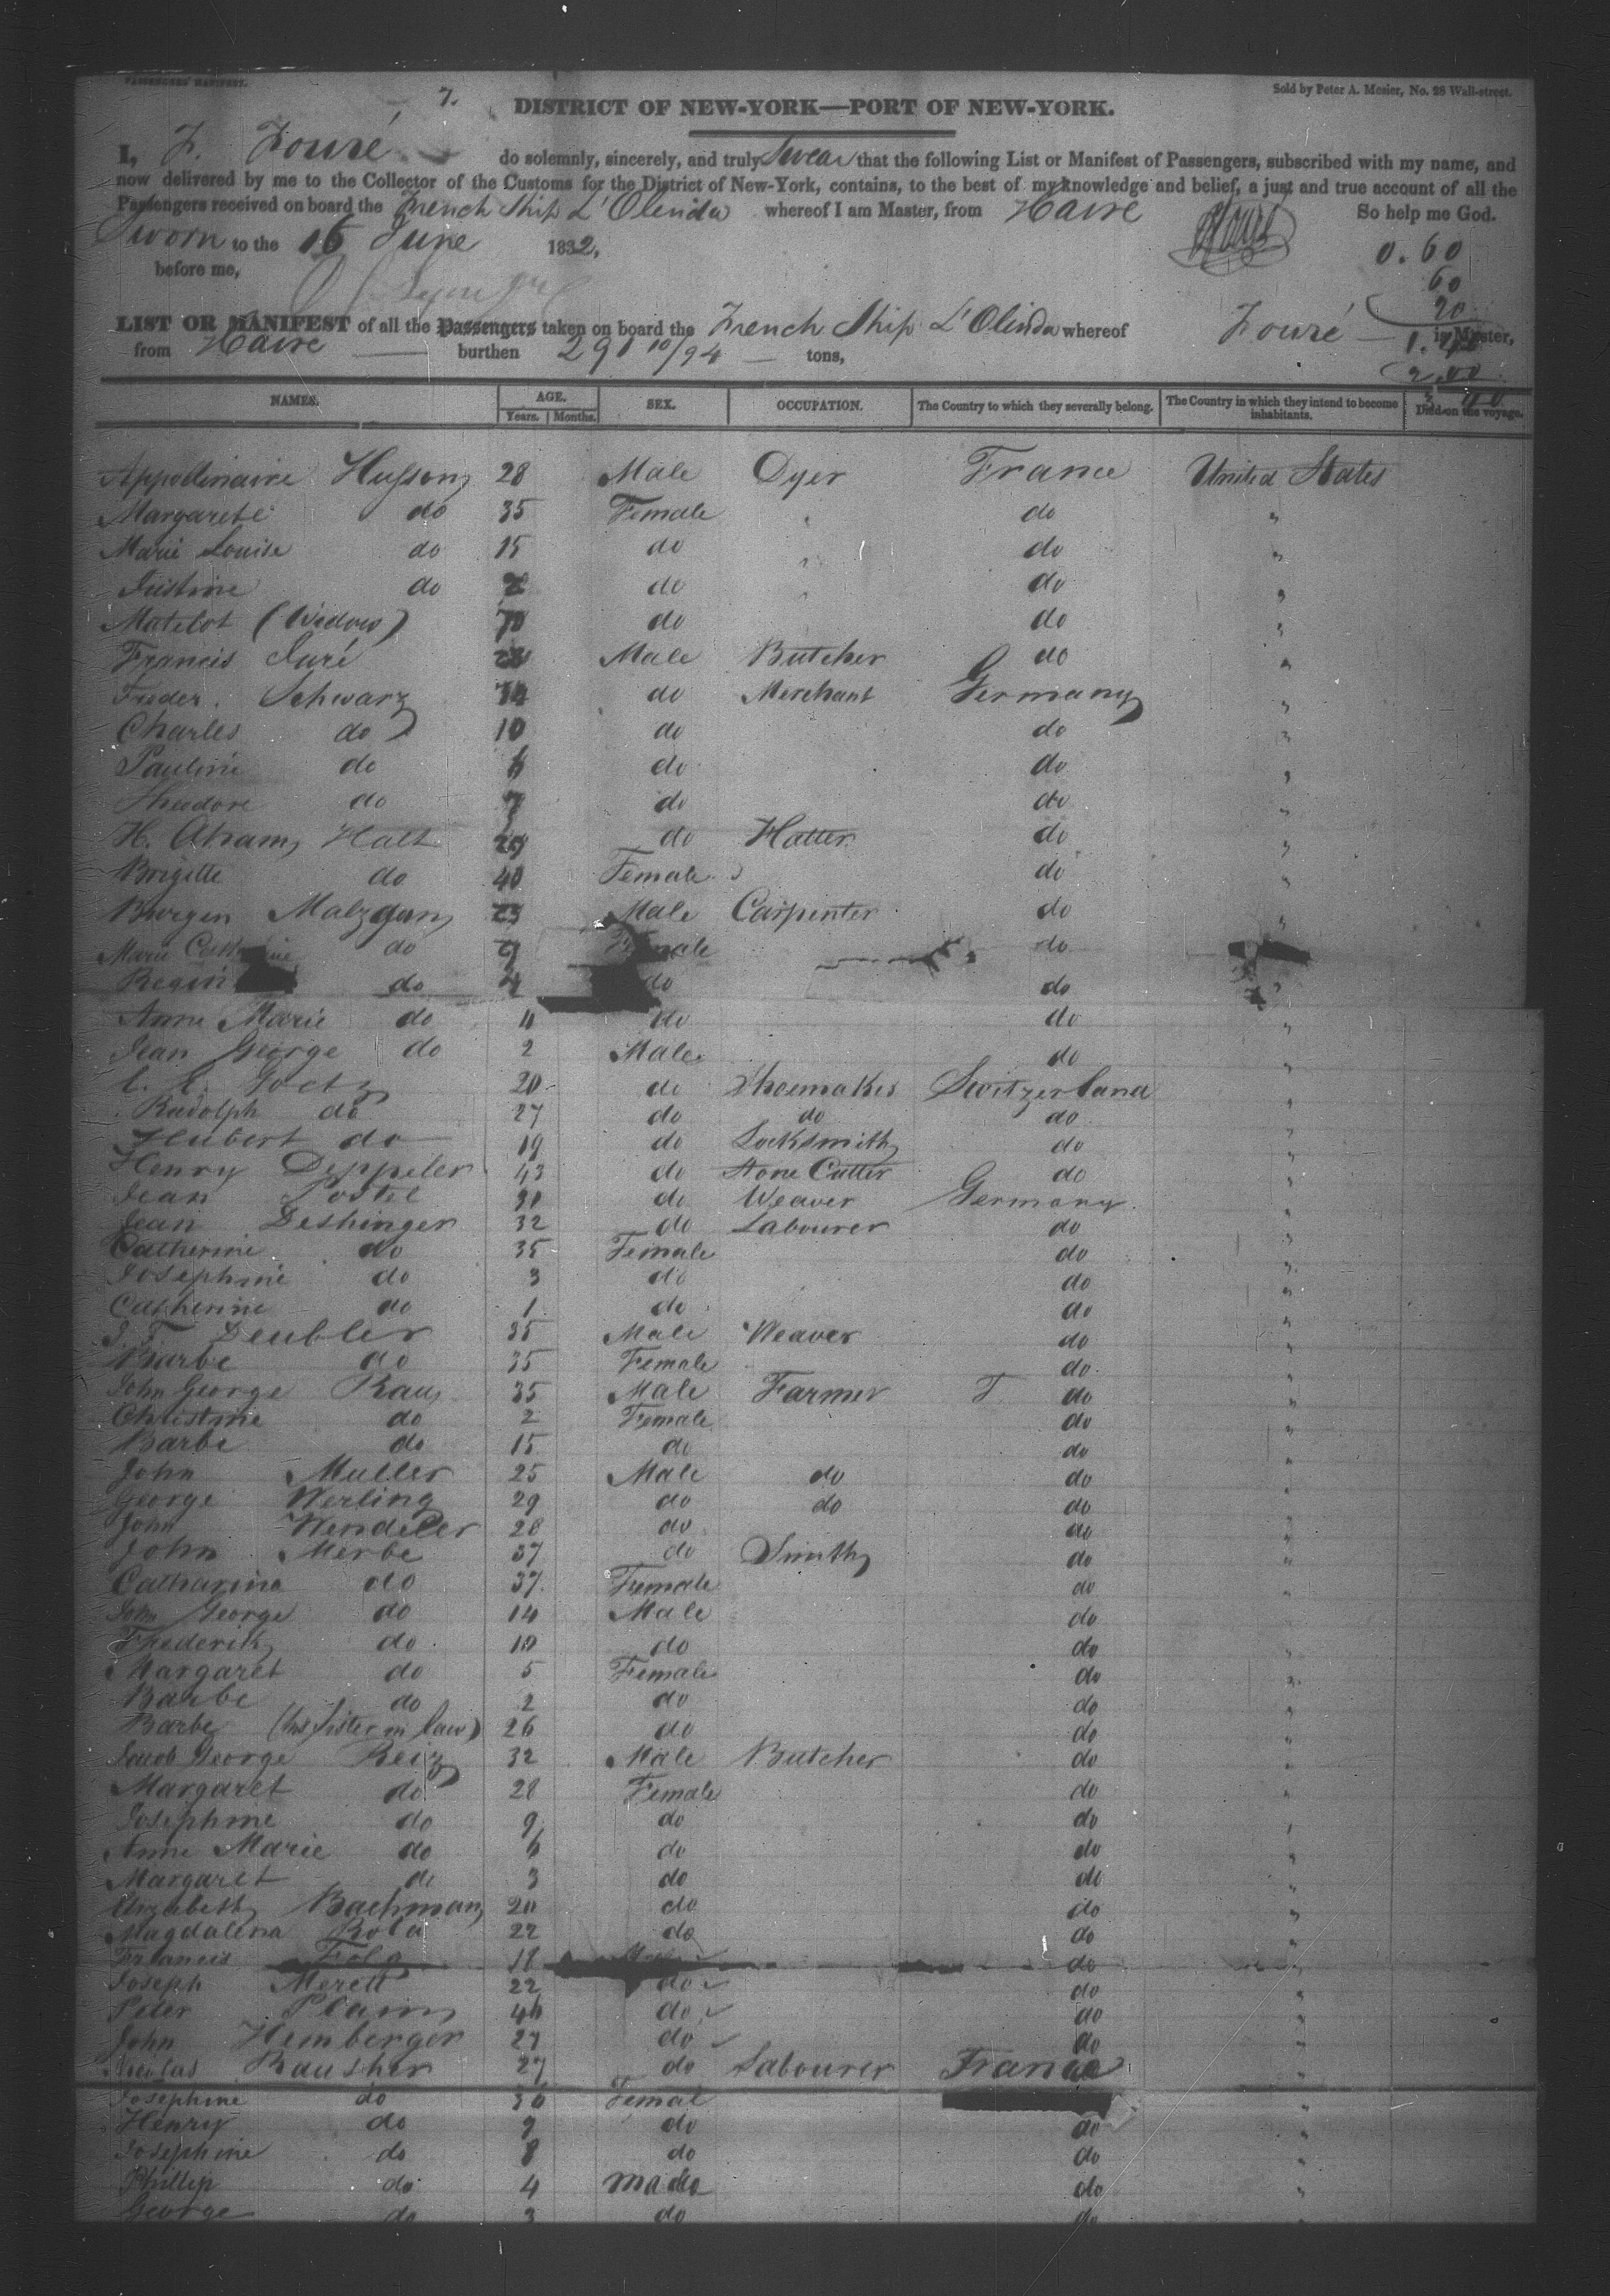 PASSENGERS' MANIFEST.
Sold by Peter A. Mesier, No. 28 Wall-street.
7.
DISTRICT OF NEW-YORK—PORT OF NEW-YORK.
I, F. Fouré do solemnly, sincerely, and truly Swear that the following List or Manifest of Passengers, subscribed with my name, and
now delivered by me to the Collector of the Customs for the District of New-York, contains, to the best of my knowledge and belief, a just and true account of all the
Passengers received on board the French Ship L'Olinda whereof I am Master, from Havre So help me God.
Sworn to the 16 June 1832,
before me,
0.60
60
20
LIST OR MANIFEST of all the Passengers taken on board the French Ship L'Olinda whereof Fouré is Master,
from Havre burthen 291 10/94 tons,
2.00
NAMES. AGE. SEX. OCCUPATION. The Country to which they severally belong. The Country in which they intend to become inhabitants. Died on the voyage.
Years. Months.
Appollinaire Husson 28 Male Dyer France United States
Margarete do 35 Female do "
Marie Louise do 15 do do "
Justine do 2 do do "
Matelot (Widow) 70 do do "
Francis Juré Male Butcher do "
Freder. Schwarz do Merchant Germany "
Charles do 10 do do "
Pauline do 6 do do "
Theodore do 7 do do "
H. Abram Halt 29 do Hatter do "
Brigitte do 40 Female do "
Burgen Malzgun 23 Male Carpenter do "
Marie Catherine do 9 Female do
Regin do 4 do do "
Anne Marie do 11 do do "
Jean George do 2 Male do "
C. C. Goetz 20 do Shoemaker Switzerland "
Rudolph do 27 do do do "
Hubert do 19 do Locksmith do "
Henry Deppeler 43 do Stone Cutter do "
Jean Postel 30 do Weaver Germany "
Jean Deshinger 32 do Labourer do "
Catherine do 35 Female do "
Josephine do 3 do do "
Catherine do 1 do do "
J. F. Deubler 35 Male Weaver do "
Barbe do 35 Female do "
John George Rau 35 Male Farmer do "
Christine do 2 Female do "
Barbe do 15 do do "
John Muller 25 Male do do "
George Werling 29 do do do "
John Wendeler 28 do do "
John Merbe 37 do Smith do "
Catharina do 37 Female do "
John George do 14 Male do "
Frederik do 10 do do "
Margaret do 5 Female do "
Barbe do 2 do do "
Barbe (his Sister in law) 26 do do "
Jacob George Reiz 32 Male Butcher do "
Margaret do 28 Female do "
Josephine do 9 do do "
Anne Marie do 6 do do "
Margaret do 3 do do "
Elizabeth Bachman 20 do do "
Magdalena Bola 22 do do "
Francis Fola 18 do "
Joseph Merett 22 do do "
Peter Plain do do "
John Hemberger 27 do do "
Nicolas Rausher 27 do Labourer France "
Josephine do 30 Femal "
Henry do 9 do do "
Josephine do 8 do do "
Phillip do 4 male do "
George do 3 do do "